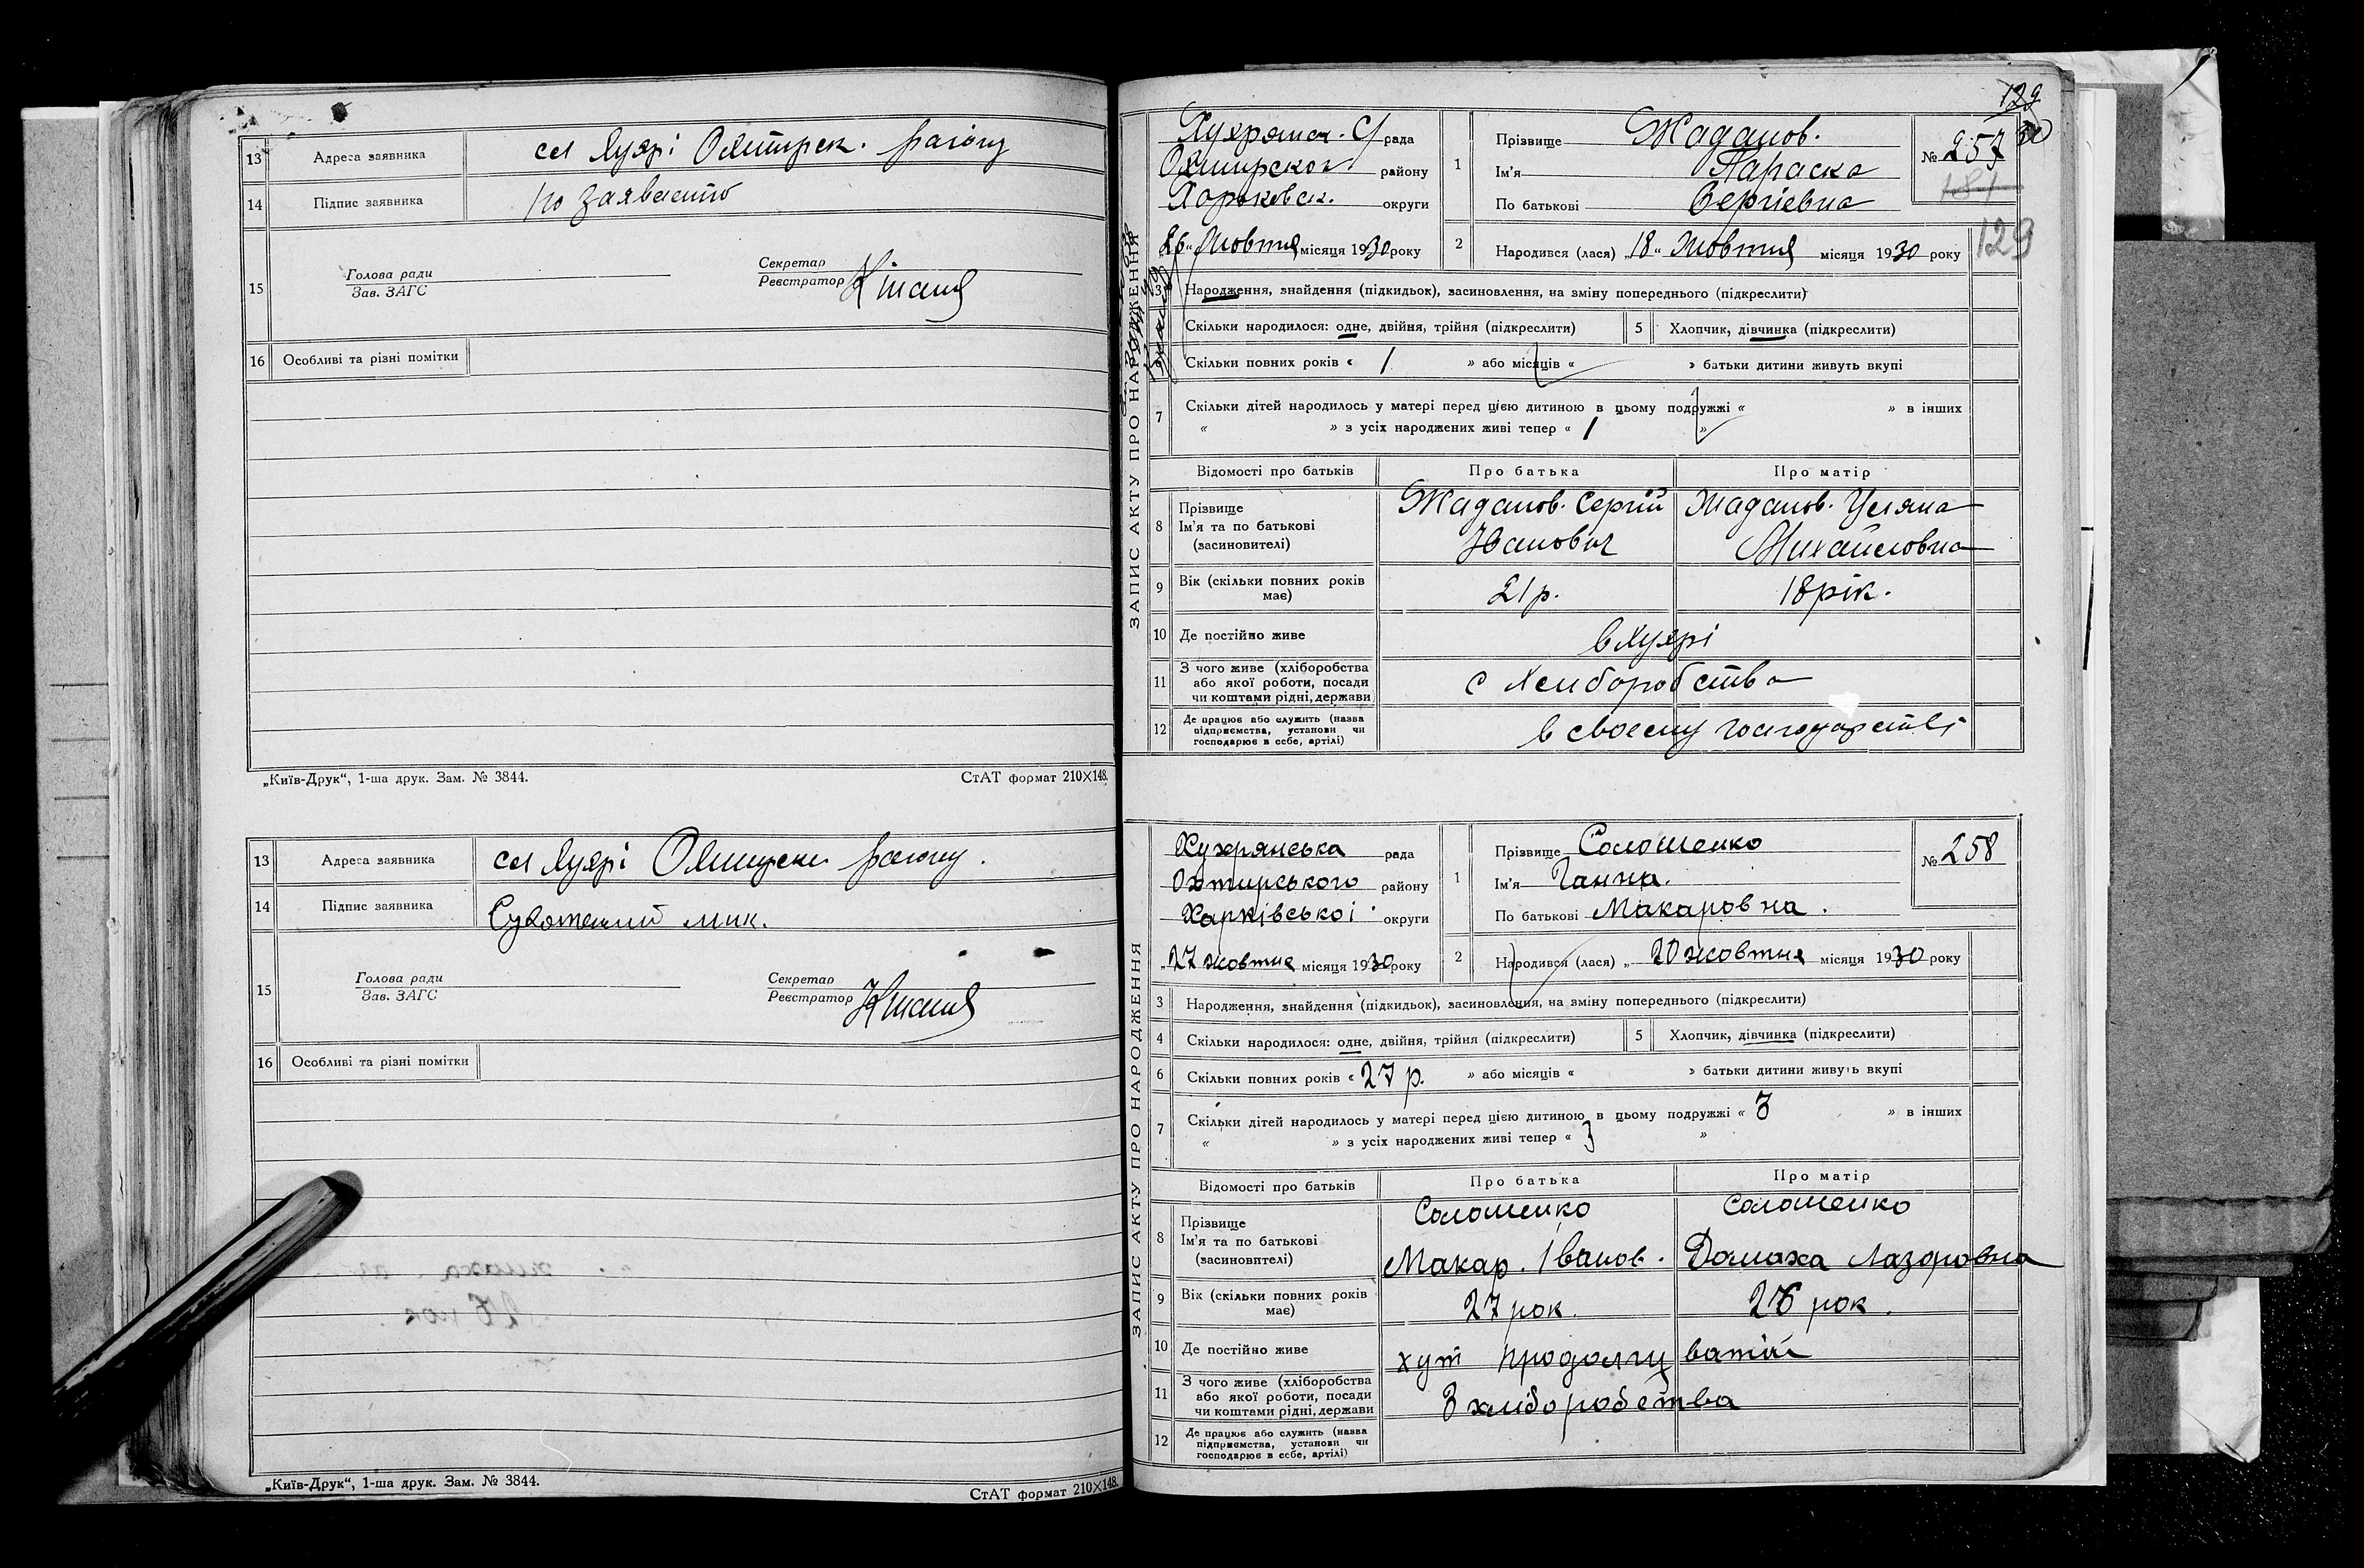 13 Адреса заявника сел Хухрі Охтирск. району
14 Підпис заявника по заяв
15 Голова ради Зав. ЗАГС Секретар Реєстратор
16 Особливі та різні помітки
„Київ-Друк“, 1-ша друк. Зам. № 3844. СтАТ формат 210×148.
13 Адреса заявника сел Хухрі району.
14 Підпис заявника
15 Голова ради Зав. ЗАГС Секретар Реєстратор
16 Особливі та різні помітки
„Київ-Друк“, 1-ша друк. Зам. № 3844. СтАТ формат 210×148.
129
ЗАПИС АКТУ ПРО НАРОДЖЕННЯ
Хухрянск. С/рада
Охтирског. району
Харьковск. округи
„26“ Жовтня місяця 1930 року
1 Прізвище Жаданов.
Ім'я Параска
По батькові Сергіевна
№ 257
181
129
2 Народився (лася) „18“ Жовтня місяця 1930 року
3 Народження, знайдення (підкидьок), засиновлення, на зміну попереднього (підкреслити)
Скільки народилося: одне, двійня, трійня (підкреслити) 5 Хлопчик, дівчинка (підкреслити)
Скільки повних років « 1 » або місяців « » батьки дитини живуть вкупі
7 Скільки дітей народилось у матері перед цією дитиною в цьому подружжі « » в інших
« » з усіх народжених живі тепер « 1 »
Відомості про батьків Про батька Про матір
8 Прізвище Ім'я та по батькові (засиновителі) Жаданов. Сергій Іванович Жаданов. Уляна Михайловна
9 Вік (скільки повних років має) 21 р. 18 рік.
10 Де постійно живе в Хухрі
11 З чого живе (хліборобства або якої роботи, посади чи коштами рідні, держави) с хлиборобства
12 Де працює або служить (назва підприємства, установи чи господарює в себе, артілі) в своему господарстві
ЗАПИС АКТУ ПРО НАРОДЖЕННЯ
Хухрянська рада
Охтирського району
Харківської округи
„27 жовтня місяця 1930 року
1 Прізвище Солошенко
Ім'я Ганна.
По батькові Макаровна.
№ 258
2 Народився (лася) „ 20 жовтня місяця 1930 року
3 Народження, знайдення (підкидьок), засиновлення, на зміну попереднього (підкреслити)
4 Скільки народилося: одне, двійня, трійня (підкреслити) 5 Хлопчик, дівчинка (підкреслити)
6 Скільки повних років « 27 р. » або місяців « » батьки дитини живуть вкупі
7 Скільки дітей народилось у матері перед цією дитиною в цьому подружжі « 3 » в інших
« » з усіх народжених живі тепер « 3 »
Відомості про батьків Про батька Про матір
8 Прізвище Ім'я та по батькові (засиновителі) Солошенко Макар. Іванов. Солошенко Домаха Лазоровна
9 Вік (скільки повних років має) 27 рок. 26 рок.
10 Де постійно живе хут Продолгуватий
11 З чого живе (хліборобства або якої роботи, посади чи коштами рідні, держави) З хліборобства
12 Де працює або служить (назва підприємства, установи чи господарює в себе, артілі)